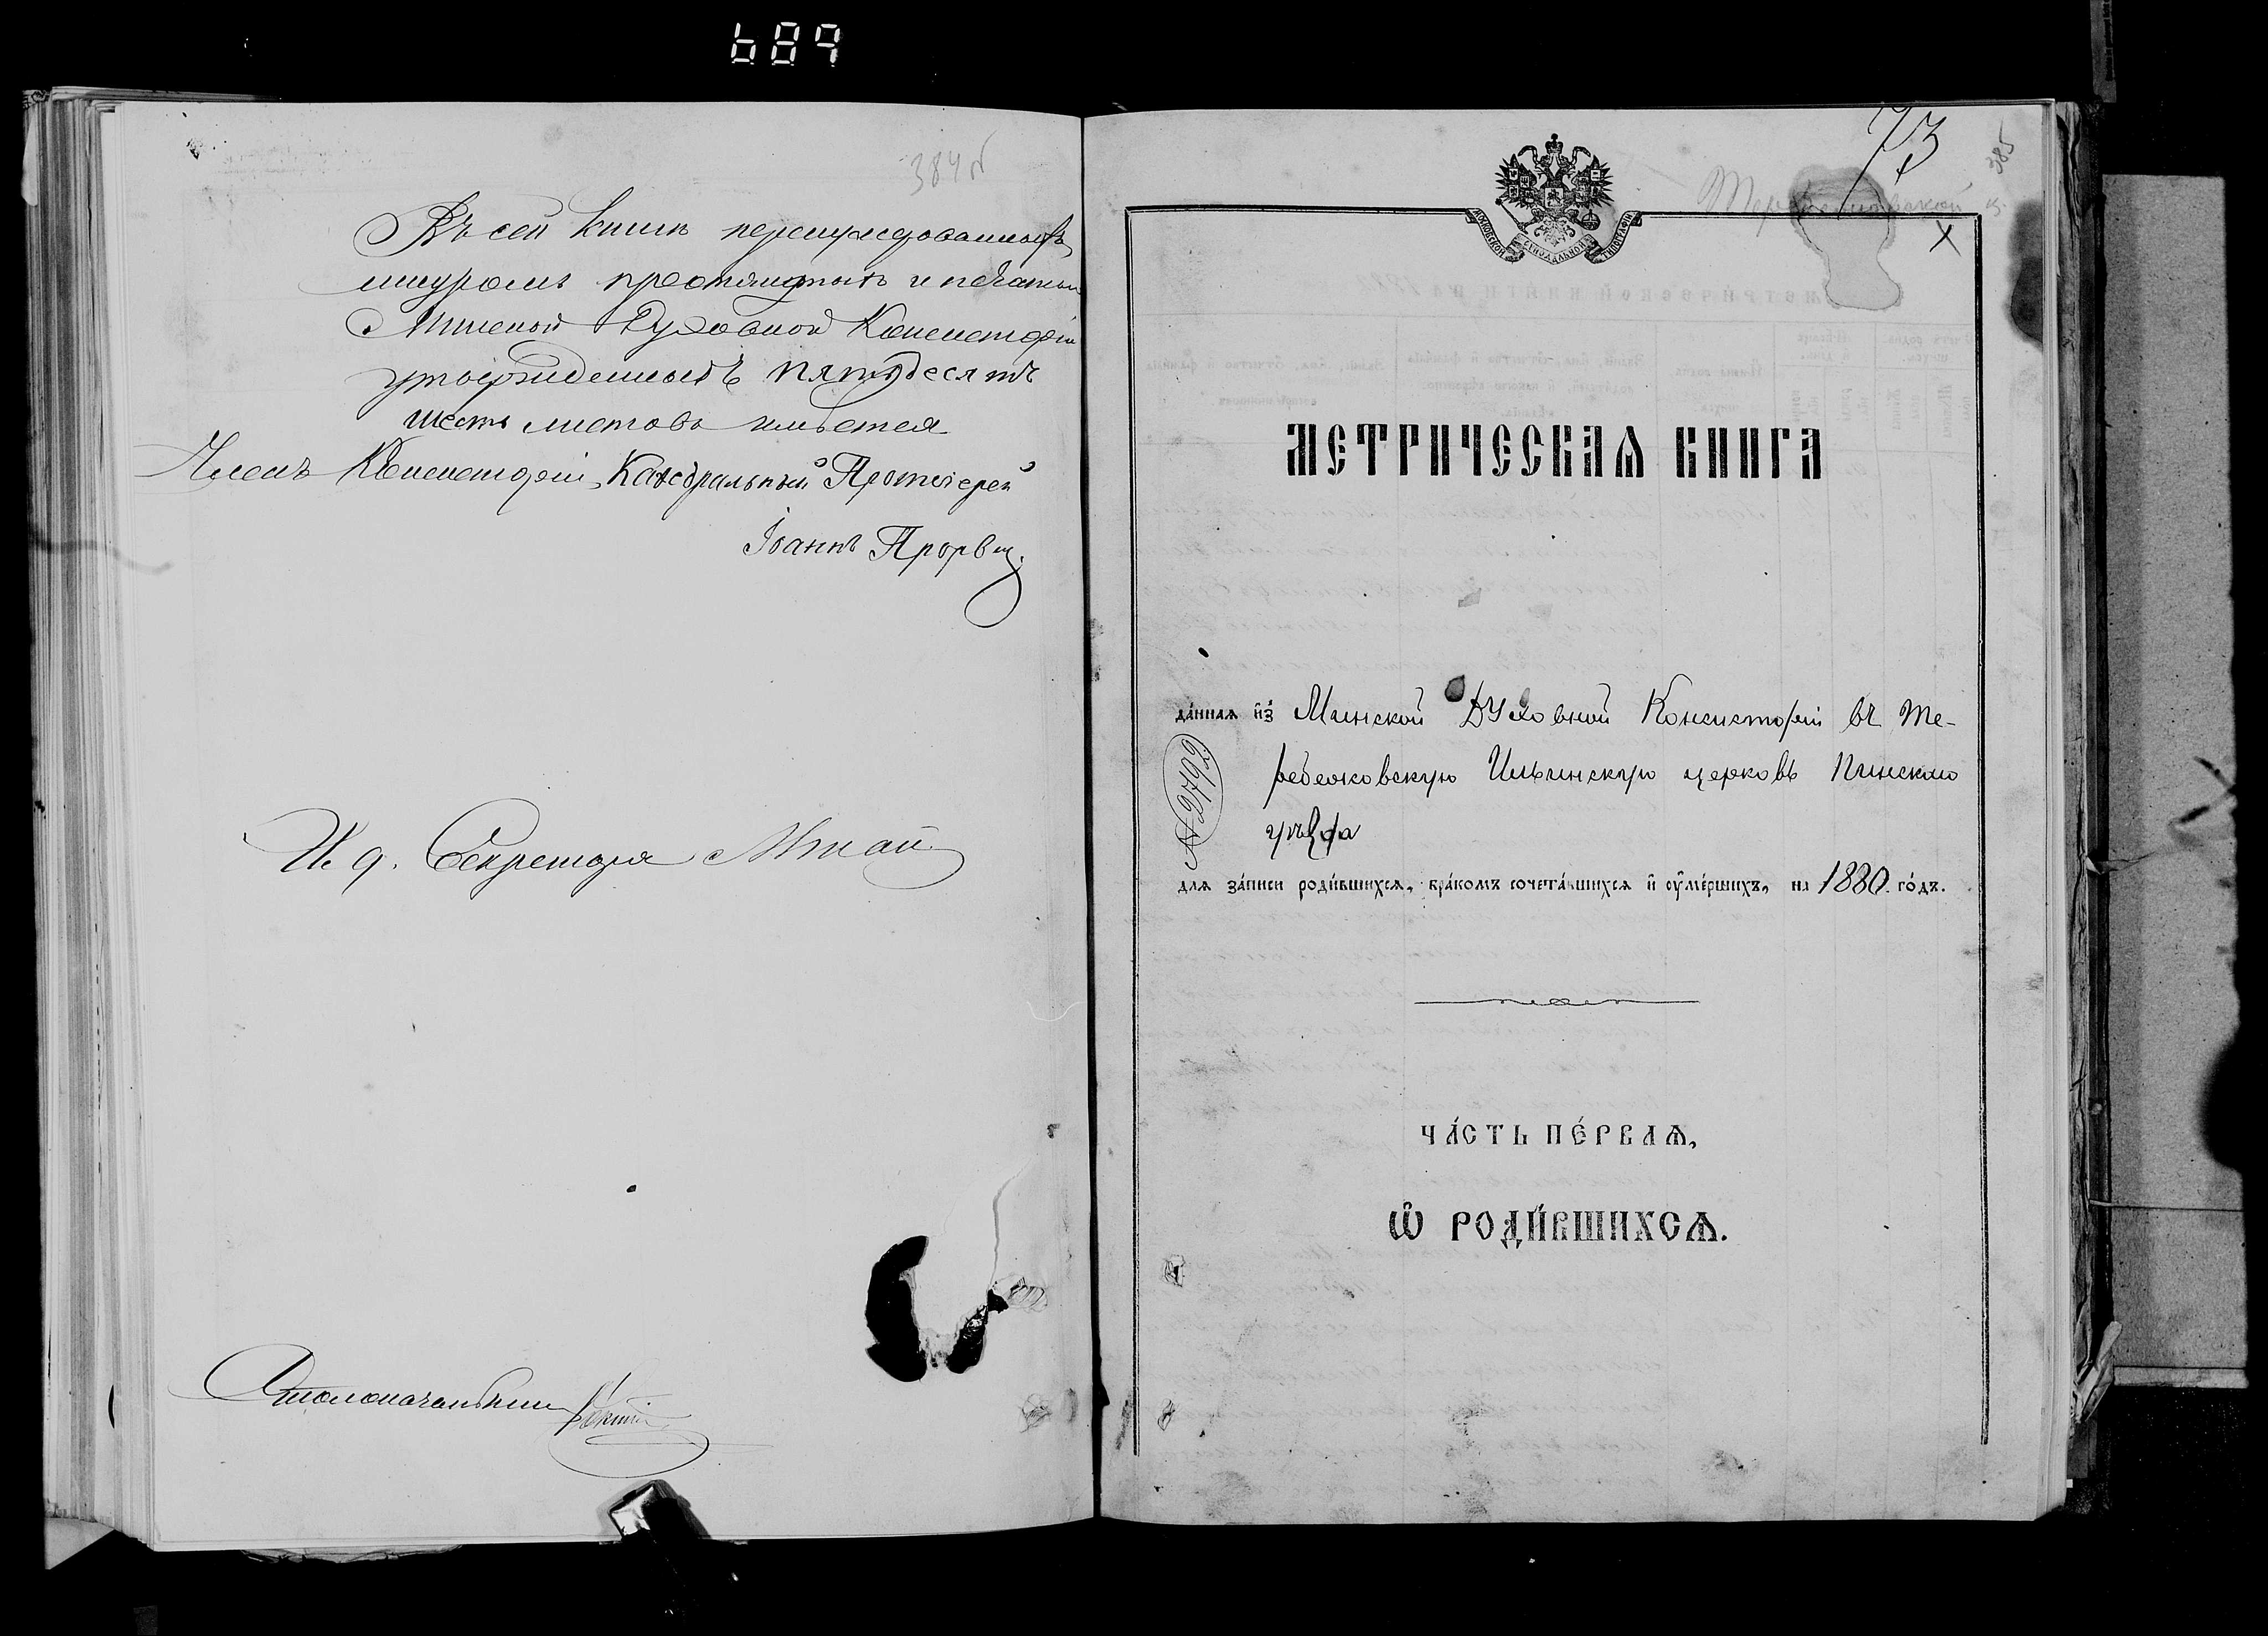 689
384об
Въ сей книгѣ перенумерованныхъ
шнуромъ простянутыхъ и печатью
Минской Духовной Консисторіи
утвержденныхъ пятьдесятъ
шесть листовъ имѣется
Членъ Консисторіи, Каѳедральный Протоіерей
Іоаннъ
И. д. Секретаря
Столоначальникъ
73
385
МОСКОВСКОЙ СѴНОДАЛЬНОЙ ТИПОГРАФІИ
X
МЕТРИЧЕСКАЯ КНИГА
да́нная и҆з̾ Минской Духовной Консисторіи въ Те-
ребежовскую Ильинскую церковь Пинскаго
уѣзда
№ 2792
для за́писи роди́вшихсѧ, бра́комъ сочета́вшихсѧ и҆ ᲂу҆ме́ршихъ, на 1880 го́дъ.
ЧА́СТЬ ПЕ́РВАѦ,
Ѽ РОДИ́ВШИХСѦ.